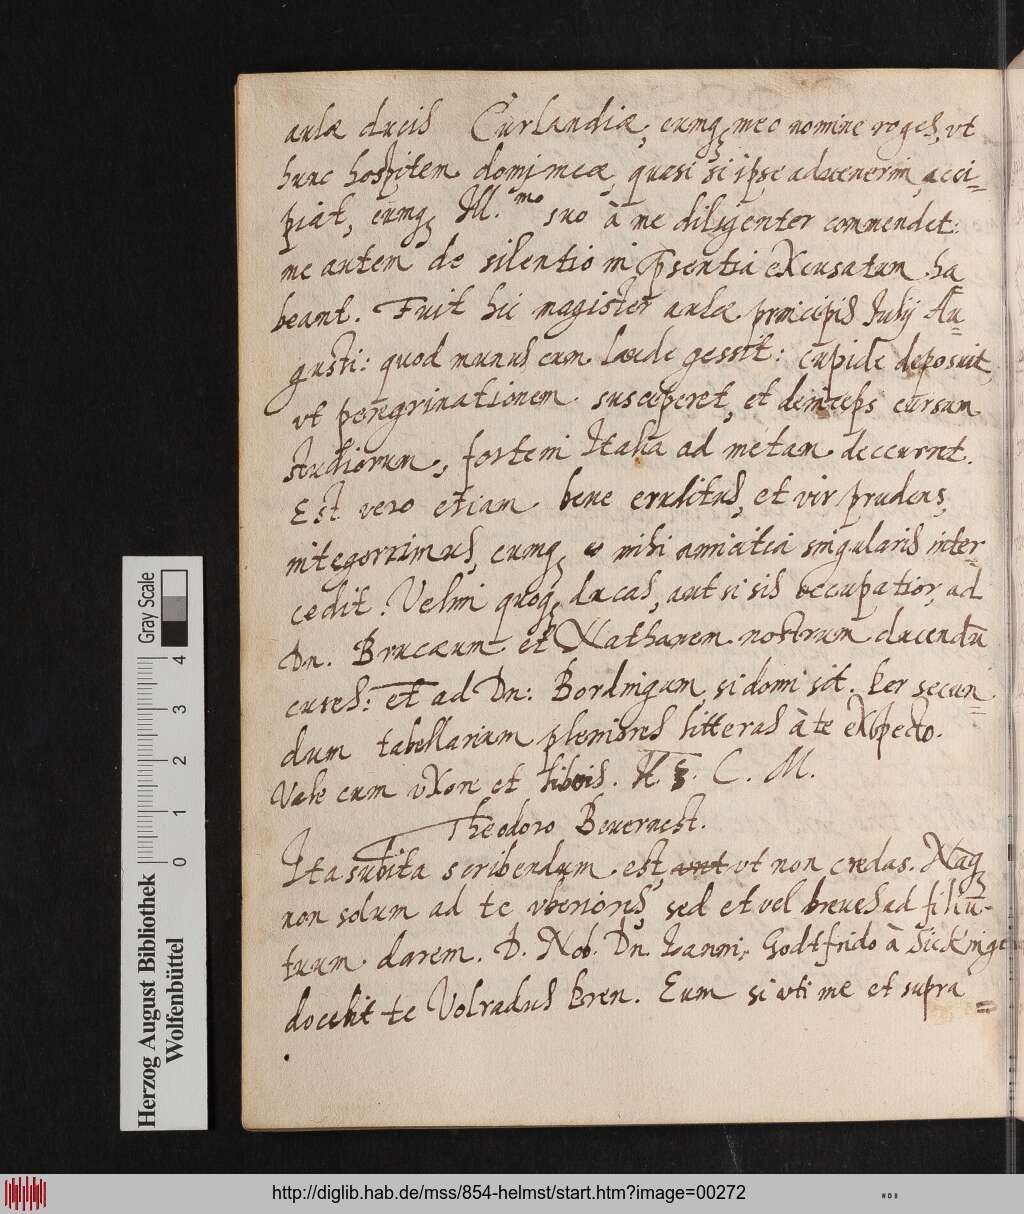 aulæ ducis Curlandiæ, eumq; meo nomine roges, vt
hunc hospitem domi meæ, quasi si ipse advenerim, acci-
piat, eumq; Ill.mo suo à me diligenter commendet:
me autem de silentio in pſentia excusatum ha
beant. Fuit hic magister aulæ principis Iulij Au=
gusti: quod munus cum laude gessit: cupide deposuit,
vt peregrinationem susciperet, et deinceps cursum
studiorum, forte in Italia ad metam decurret.
Est vero etiam bene eruditus, et vir prudens,
integerrimus, cumq; mihi amicitia singularis inter-
cedit. Velim quoq; ducas, aut si sis occupatior, ad
Dn. Brucæum et Nathanem nostrum ducendū
cures: et ad Dn: Bordingum, si domi sit. Per secun=
dum tabellarium pleniores litteras à te expecto.
Vale cum vxore et liberis. H. C. M.
Theodoro Beuernest.
Ita subita scribendum est, vt non credas. Naq;
non solum ad te vberiores, sed et vel breues ad filiū
tuum darem. D. Nob. Dn. Ioanni Godtfrido à Sicking
docebit te Volradus Pren. Eum si vti me et supra =
Herzog August Bibliothek
Wolfenbüttel
0 1 2 3 4
Gray Scale
http://diglib.hab.de/mss/854-helmst/start.htm?image=00272